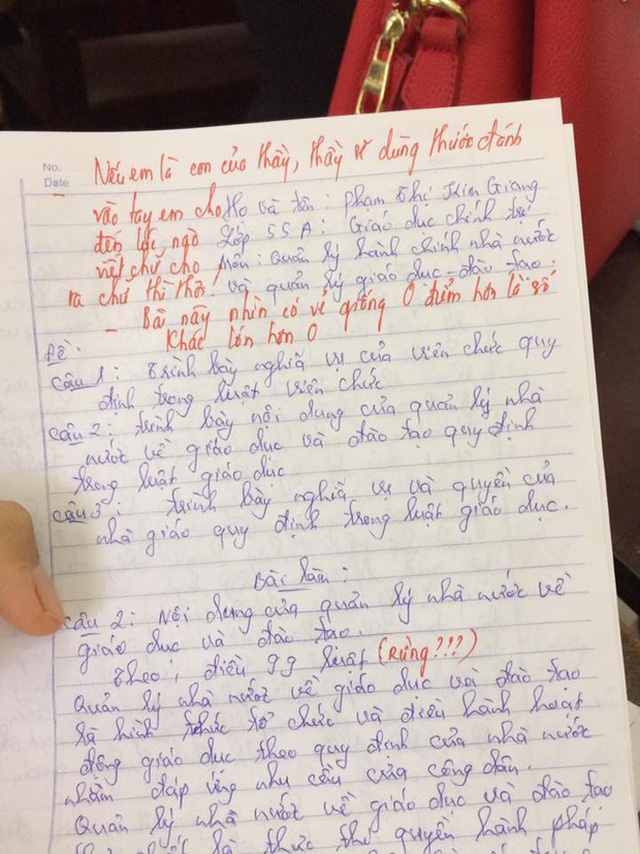 No.
Date
Nếu em là con của thầy, thầy sẽ dùng thước đánh
vào tay em cho
đến lúc nào
nét chữ cho
ra chữ thì thôi!
Họ và tên: Phạm Thị Kim Giang
Lớp 55A: Giáo dục chính trị
Môn: Quản lý hành chính nhà nước
và quản lý giáo dục - đào tạo.
- Bài này nhìn có vẻ giống 0 điểm hơn là số
khác lớn hơn 0
Đề:
Câu 1: Trình bày nghĩa vụ của viên chức quy
định trong luật viên chức
Câu 2: trình bày nội dung của quản lý nhà
nước về giáo dục và đào tạo quy định
trong luật giáo dục
Câu 3: trình bày nghĩa vụ và quyền của
nhà giáo quy định trong luật giáo dục.
Bài làm:
Câu 2: Nội dung của quản lý nhà nước về
giáo dục và đào tạo.
Theo, điều 99 luật (Rừng???)
Quản lý nhà nước về giáo dục và đào tạo
là hình thức tổ chức và điều hành hoạt
động giáo dục theo quy định của nhà nước
nhằm đáp ứng nhu cầu của công dân.
Quản lý nhà nước về giáo dục và đào tạo
là thực thi quyền hành pháp